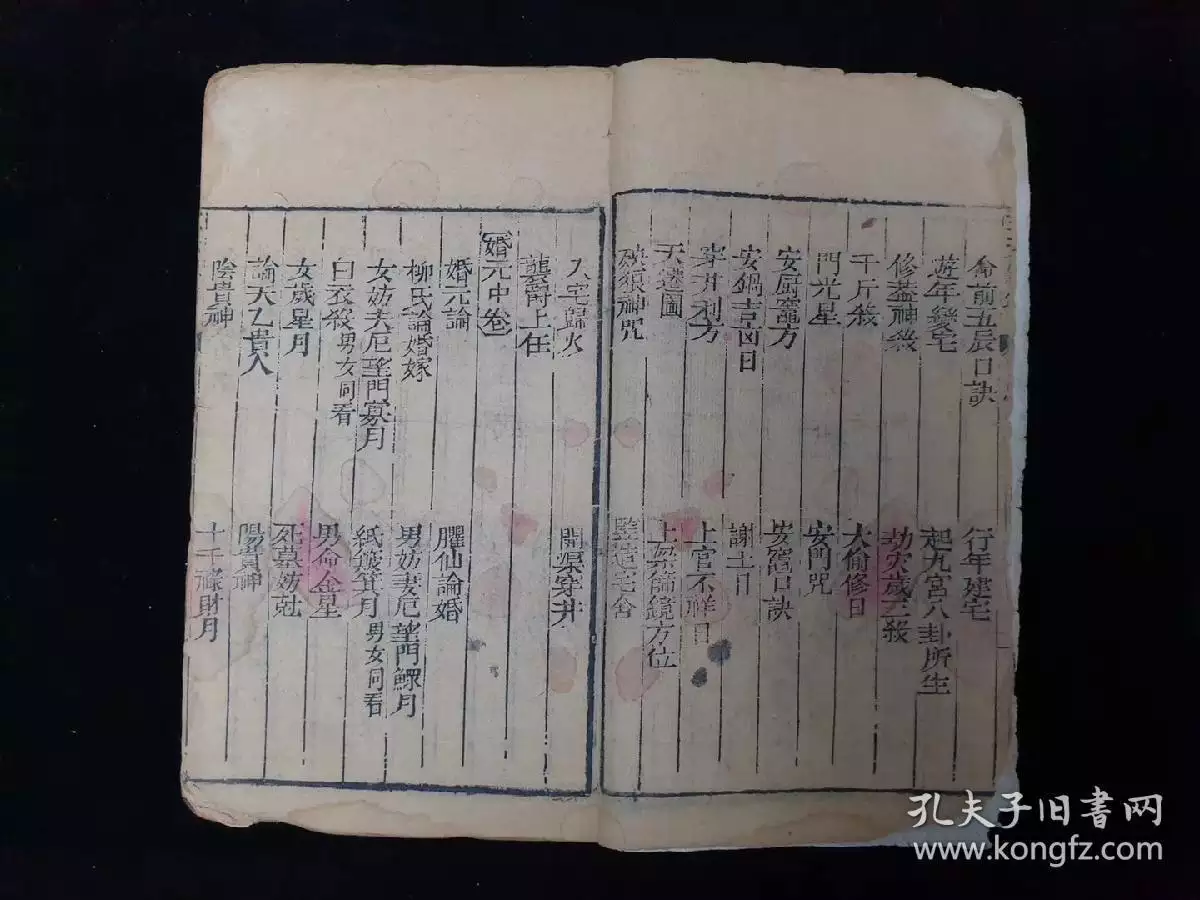 命前五辰口訣 行年建宅
遊年變宅 起九宮八卦所生
修蓋神殺 劫灾歲三殺
千斤殺 大偷修日
門光星 安門咒
安厨竈方 安竈口訣
安鍋吉凶日 謝土日
穿井利方 上官不祥日
天遷圖 上梁篩鏡方位
神咒 監造宅舍
入宅歸火 開渠穿井
襲爵上任
婚元中卷
婚元論 臞仙論婚
柳氏論婚嫁 男妨妻厄望門鰥月
女妨夫厄望門寡月 紙簸箕月男女同看
白衣殺男女同看 男命金星
女歲星月 死墓妨尅
論天乙貴人 陽貴神
陰貴神 十干祿財月
孔夫子旧書网
www.kongfz.com